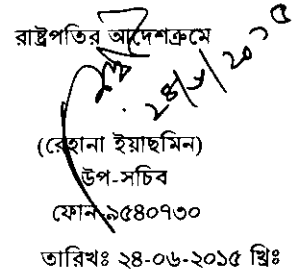 রাষ্ট্রপতির আদেশক্রমে
(রেহানা ইয়াছমিন)
উপ-সচিব
ফোন-৯৫৪০৭৩০
তারিখঃ ২৪-০৬-২০১৫ খ্রিঃ